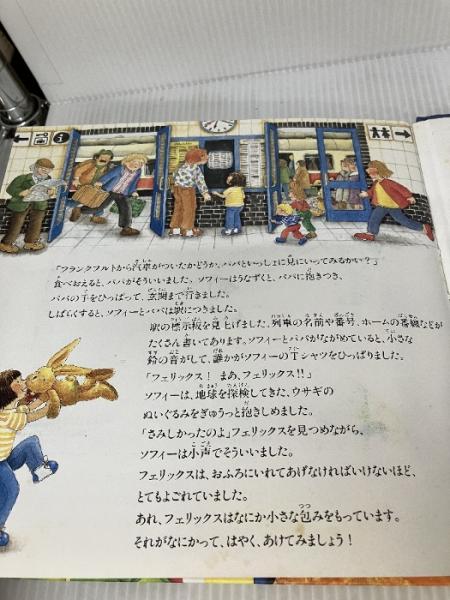 「フランクフルトから汽車がついたかどうか、パパといっしょに見にいってみるかい？」
食べおえると、パパがそういいました。ソフィーはうなずくと、パパに抱きつき、
パパの手をひっぱって、玄関まで行きました。
しばらくすると、ソフィーとパパは駅につきました。
駅の標示板を見上げました。列車の名前や番号、ホームの番線などが
たくさん書いてあります。ソフィーとパパがながめていると、小さな
鈴の音がして、誰かがソフィーのTシャツをひっぱりました。
「フェリックス！ まあ、フェリックス!!」
ソフィーは、地球を探検してきた、ウサギの
ぬいぐるみをぎゅうっと抱きしめました。
「さみしかったのよ」フェリックスを見つめながら、
ソフィーは小声でそういいました。
フェリックスは、おふろにいれてあげなければいけないほど、
とてもよごれていました。
あれ、フェリックスはなにか小さな包みをもっています。
それがなにかって、はやく、あけてみましょう！